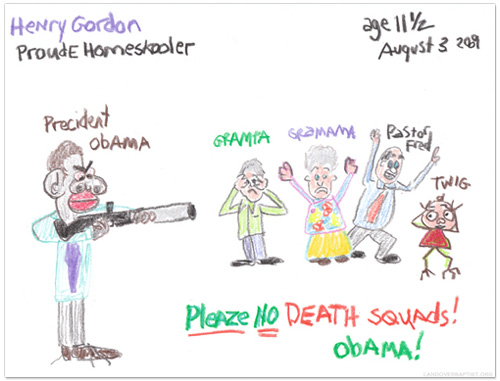 Henry Gordon
PROUdE HomeskooLer
age 11 ½
AUgUST 3 2009
Precident
ObAMA
GRAMPA
GRAMAMA
Pastor
Fred
TWIG
PLeaze NO DEATH SQUADS!
ObAMA!
LANDOVERBAPTIST.ORG